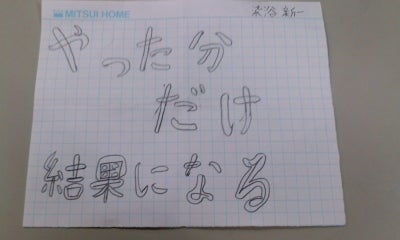 MITSUI HOME
染谷 新一
やった分
だけ
結果になる